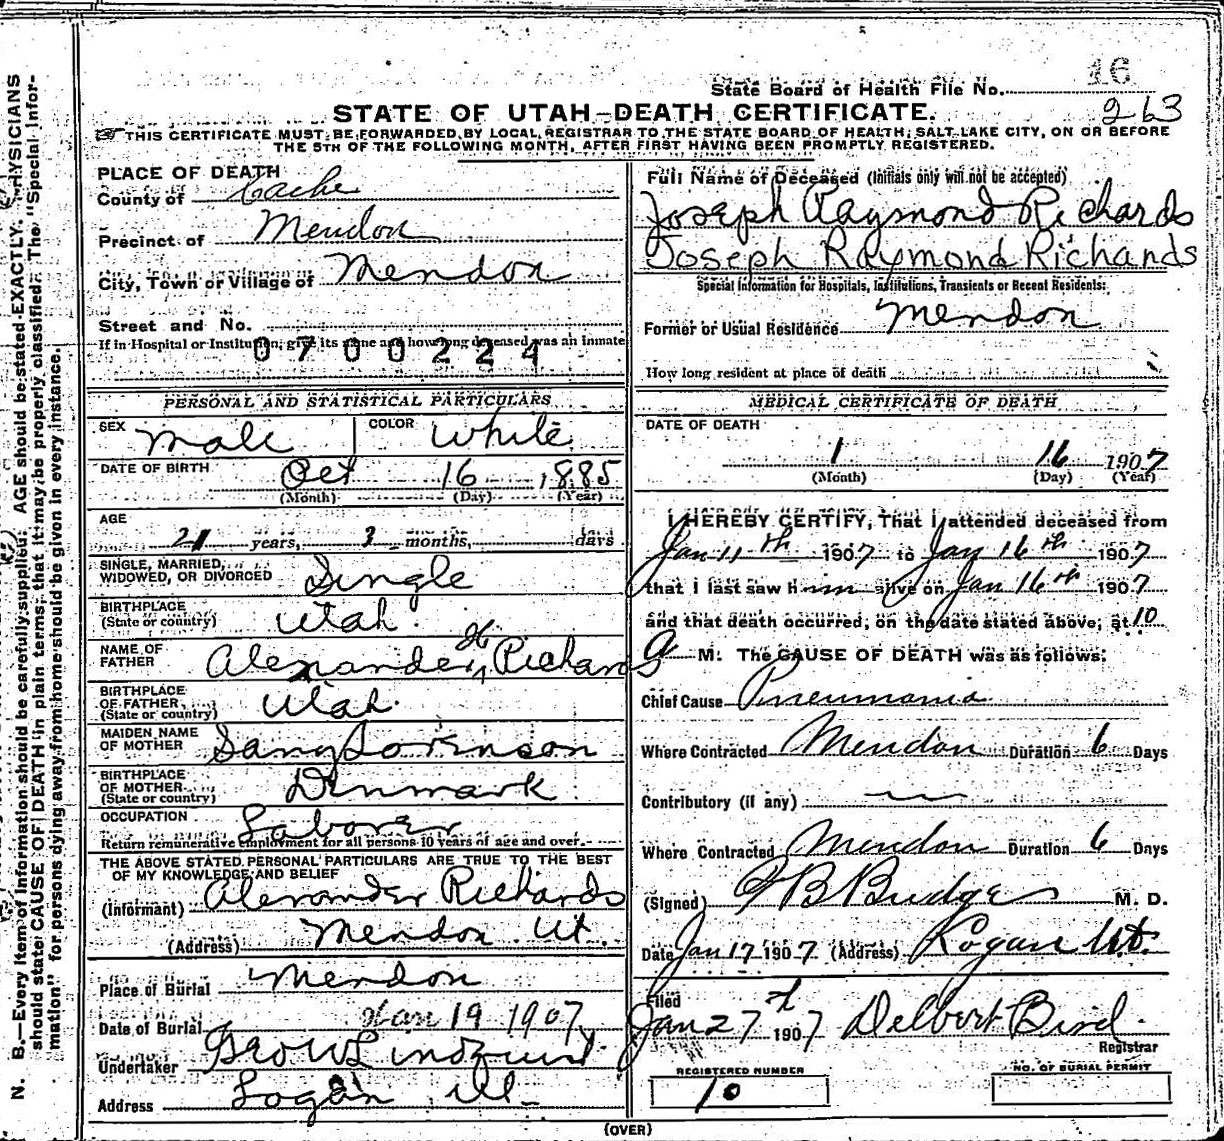 16
State Board of Health File No.
263
STATE OF UTAH—DEATH CERTIFICATE.
THIS CERTIFICATE MUST BE FORWARDED BY LOCAL REGISTRAR TO THE STATE BOARD OF HEALTH, SALT LAKE CITY, ON OR BEFORE
THE 5TH OF THE FOLLOWING MONTH, AFTER FIRST HAVING BEEN PROMPTLY REGISTERED.
N. B.—Every item of information should be carefully supplied. AGE should be stated EXACTLY. PHYSICIANS
should state CAUSE OF DEATH in plain terms, that it may be properly classified. The "Special Infor-
mation" for persons dying away from home should be given in every instance.
PLACE OF DEATH
County of Cache
Precinct of Mendon
City, Town or Village of Mendon
Street and No.
If in Hospital or Institution, give its name and how long deceased was an inmate
0700224
PERSONAL AND STATISTICAL PARTICULARS
SEX Male COLOR White
DATE OF BIRTH Oct 16 1885
(Month) (Day) (Year)
AGE
21 years, 3 months, days
SINGLE, MARRIED,
WIDOWED, OR DIVORCED Single
BIRTHPLACE
(State or country) Utah
NAME OF
FATHER Alexander H Richards
BIRTHPLACE
OF FATHER
(State or country) Utah
MAIDEN NAME
OF MOTHER Sorenson
BIRTHPLACE
OF MOTHER
(State or country) Denmark
OCCUPATION Laborer
Return remunerative employment for all persons 10 years of age and over.
THE ABOVE STATED PERSONAL PARTICULARS ARE TRUE TO THE BEST
OF MY KNOWLEDGE AND BELIEF
(Informant) Alexander Richards
(Address) Mendon Ut.
Place of Burial Mendon
Date of Burial Jan 19 1907
Undertaker Geo W Lindquist
Address Logan
Full Name of Deceased (Initials only will not be accepted)
Joseph Raymond Richards
Joseph Raymond Richards
Special Information for Hospitals, Institutions, Transients or Recent Residents:
Former or Usual Residence Mendon
How long resident at place of death
MEDICAL CERTIFICATE OF DEATH
DATE OF DEATH
1 16 1907
(Month) (Day) (Year)
I HEREBY CERTIFY, That I attended deceased from
Jan 11th 1907 to Jan 16th 1907
that I last saw him alive on Jan 16th 1907
and that death occurred, on the date stated above, at 10
a M. The CAUSE OF DEATH was as follows:
Chief Cause Pneumonia
Where Contracted Mendon Duration 6 Days
Contributory (if any)
Where Contracted Mendon Duration 6 Days
(Signed) B Budge M. D.
Date Jan 17 1907 (Address) Logan Ut.
Filed
Jan 27 1907 Delbert Bird
Registrar
REGISTERED NUMBER
10
NO. OF BURIAL PERMIT
(OVER)